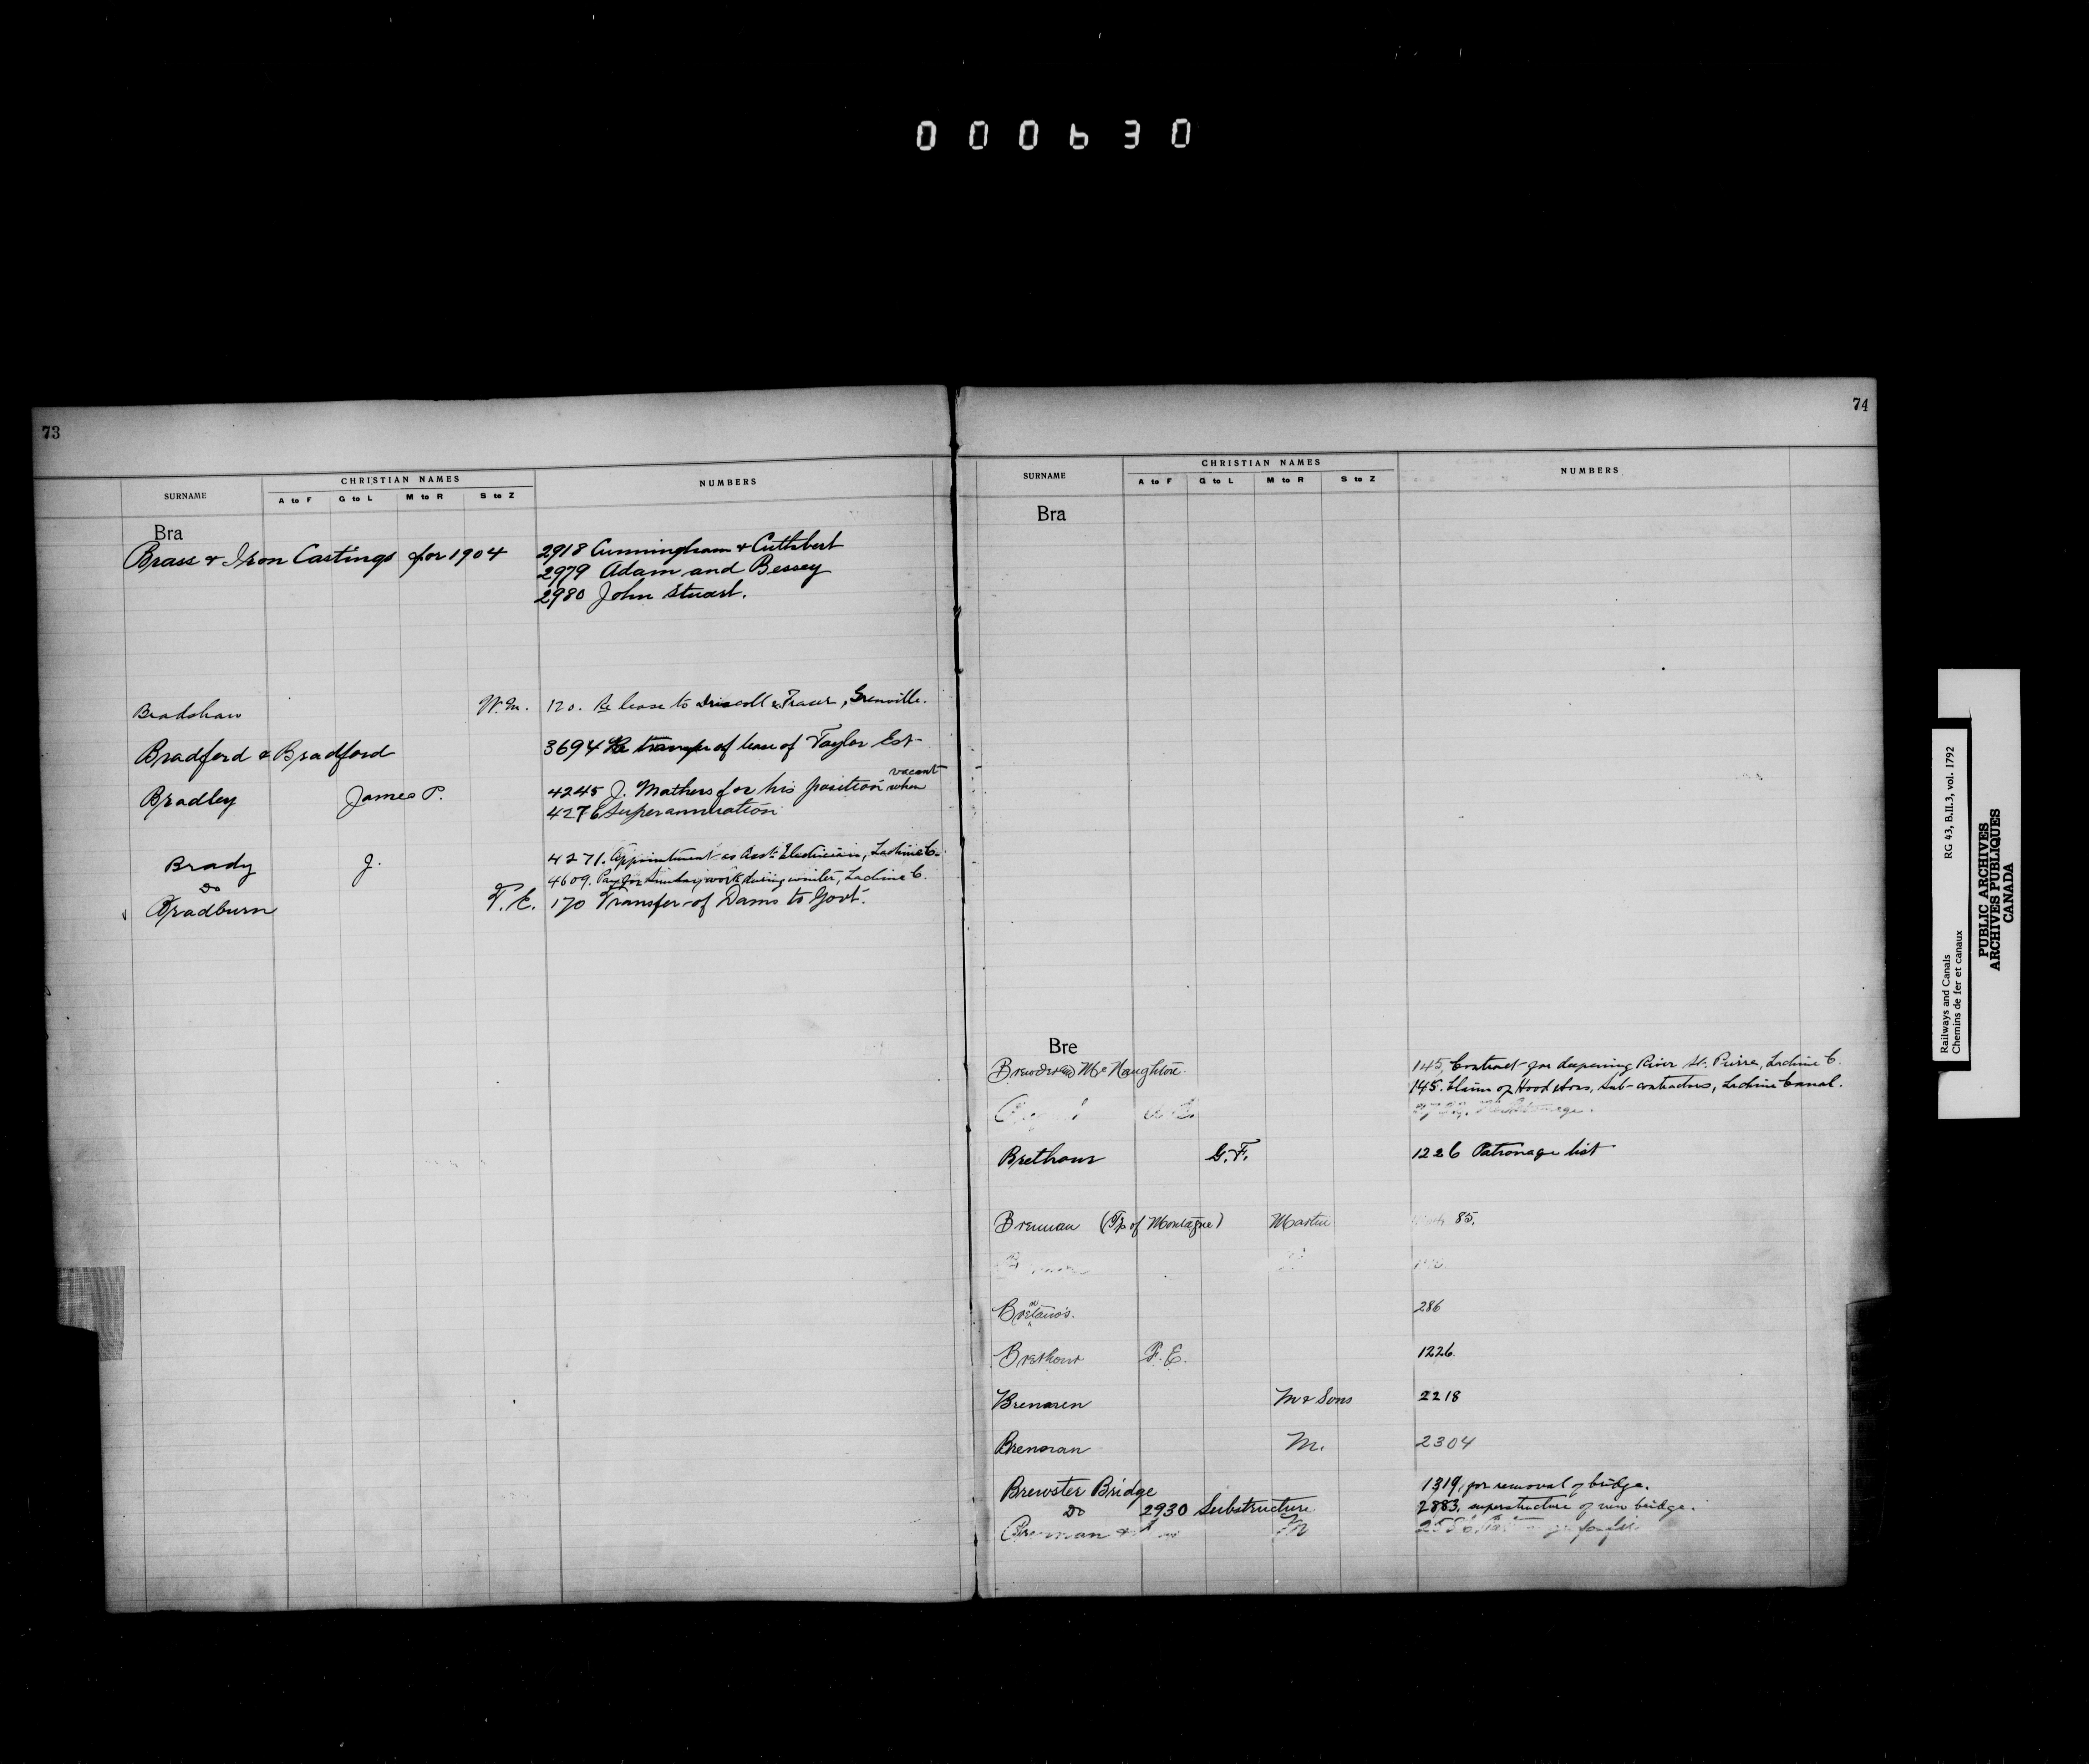 000630
73
SURNAME CHRISTIAN NAMES NUMBERS
A to F G to L M to R S to Z
Bra
Brass & Iron Castings for 1904 2918 Cunningham & Cuthbert
2979 Adam and Bessey
2980 John Stuart.
Bradshaw W.M. 120. Re lease to Driscoll & Fraser, Grenville.
Bradford & Bradford 3694 Re transfer of lease of Taylor Est
Bradley James P. 4245 J. Mathers for his position when vacant
4276 Superannuation
Brady J. 4271. Appointment as Asst. Electrician, Lachine C.
Do 4609. Pay for work during winter, Lachine C.
Bradburn T.E. 170 Transfer of Dams to Govt.
74
SURNAME CHRISTIAN NAMES NUMBERS
A to F G to L M to R S to Z
Bra
Bre
Brewder and McNaughton 145, Contract for deepening River St. Pierre, Lachine C.
145. Claim of Hood & Sons, sub-contractors, Lachine Canal.
Brethour G.F. 1226 Patronage list
Brennan (Tp of Montague) Martin 85.
286
Brethour F.E. 1226
Brenaren M & Sons 2218
Brennan M. 2304
Brewster Bridge 1319, for removal of bridge.
Do 2930 Substructure 2883, superstructure of new bridge.
M
Railways and Canals RG 43, B.II.3, vol. 1792
Chemins de fer et canaux
PUBLIC ARCHIVES
ARCHIVES PUBLIQUES
CANADA